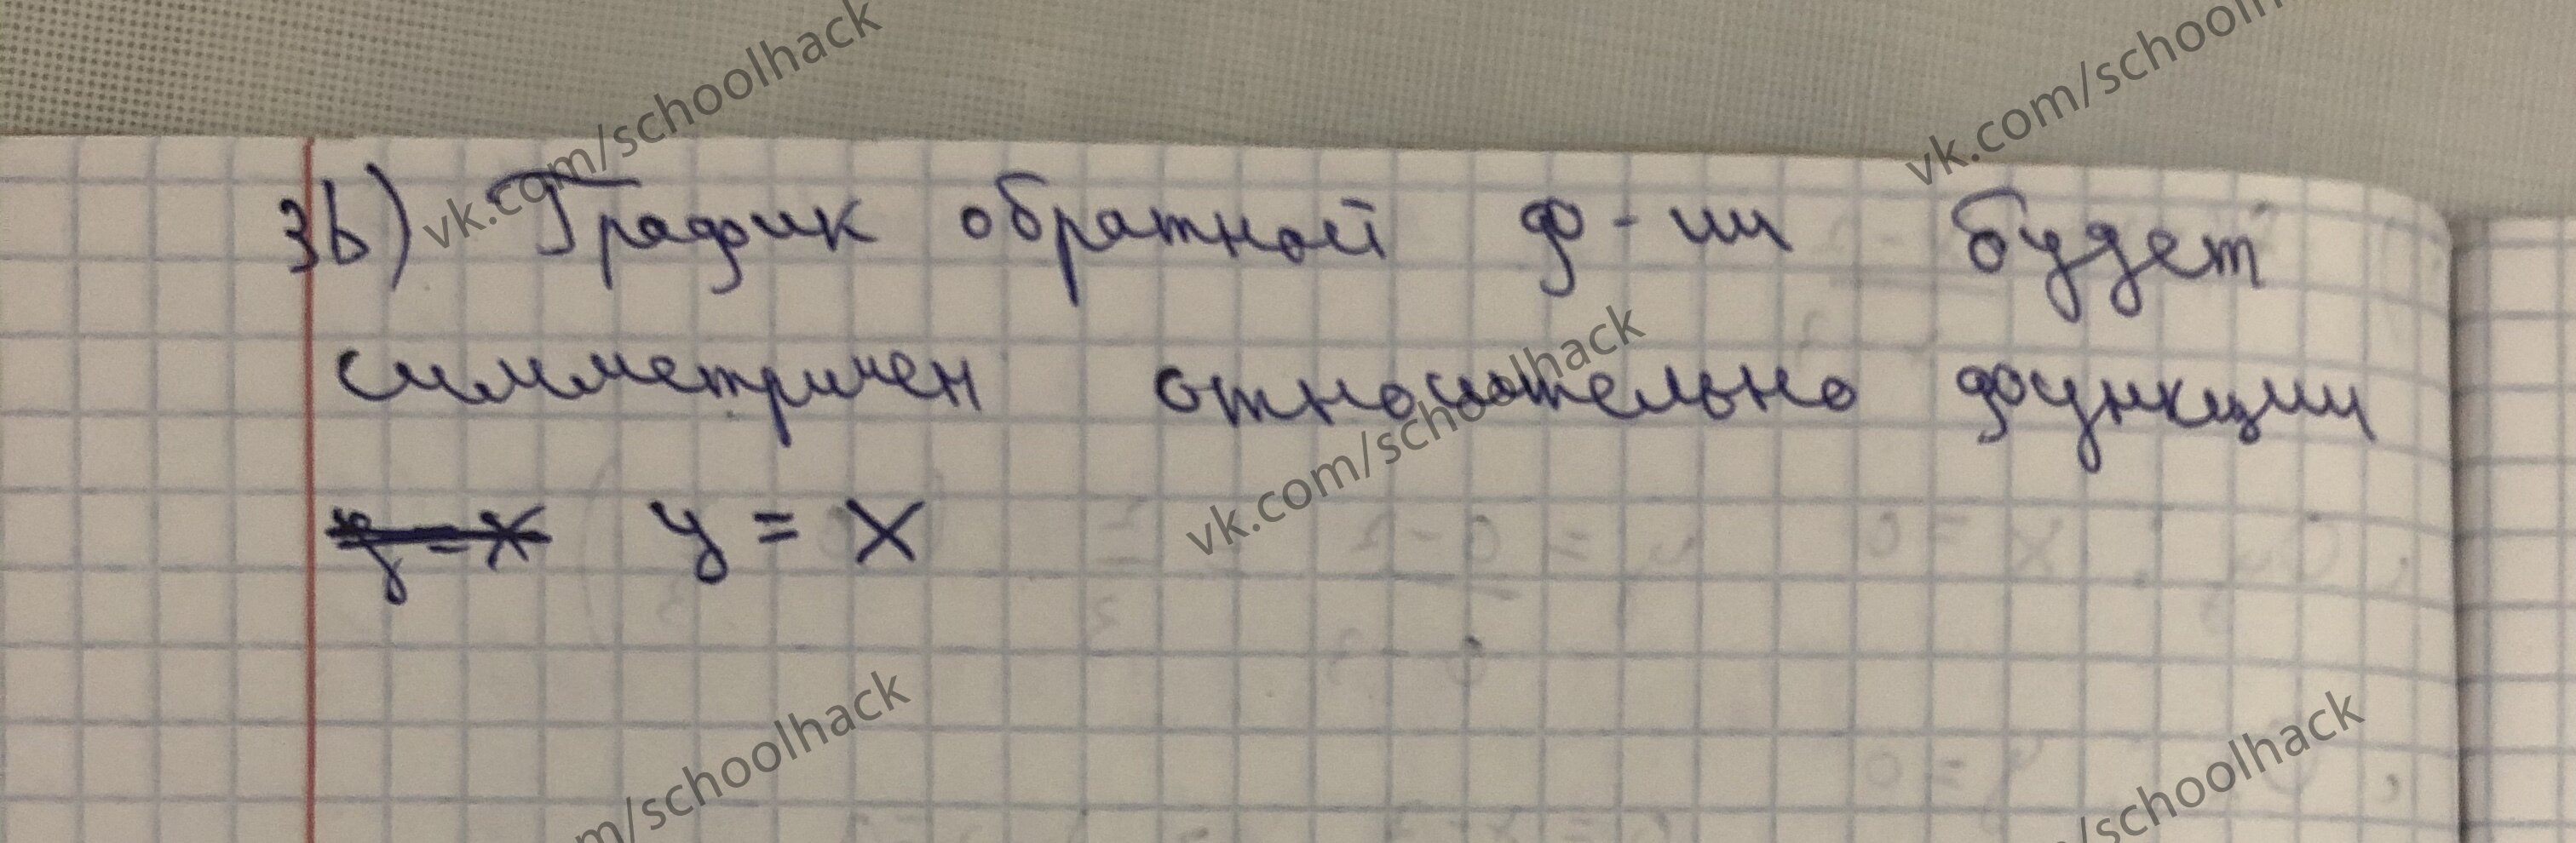 3b) График обратной ф-ии будет
симметричен относительно функции
y = x
vk.com/schoolhack
vk.com/schoolh
vk.com/schoolhack
m/schoolhack
/schoolhack